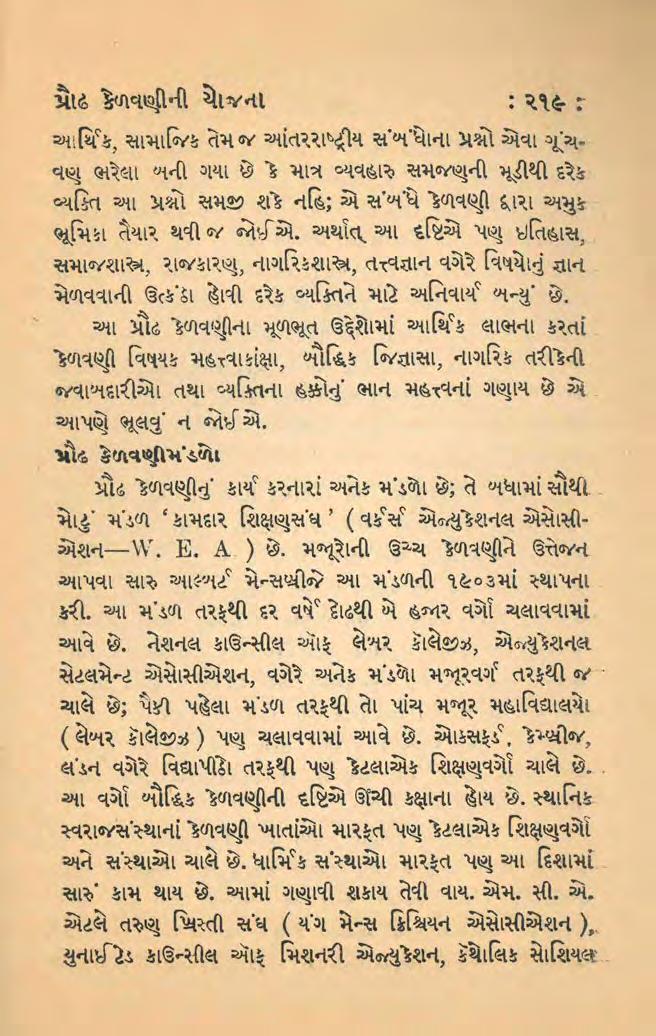 પ્રૌઢ કેળવણીની યોજના : ૨૧૯ :
આર્થિક, સામાજિક તેમ જ આંતરરાષ્ટ્રીય સંબંધોના પ્રશ્નો એવા ગૂંચ-
વણ ભરેલા બની ગયા છે કે માત્ર વ્યવહારુ સમજણની મૂડીથી દરેક
વ્યક્તિ આ પ્રશ્નો સમજી શકે નહિ; એ સંબંધે કેળવણી દ્વારા અમુક
ભૂમિકા તૈયાર થવી જ જોઈએ. અર્થાત્ આ દૃષ્ટિએ પણ ઇતિહાસ,
સમાજશાસ્ત્ર, રાજકારણ, નાગરિકશાસ્ત્ર, તત્ત્વજ્ઞાન વગેરે વિષયોનું જ્ઞાન
મેળવવાની ઉત્કંઠા હોવી દરેક વ્યક્તિને માટે અનિવાર્ય બન્યું છે.
આ પ્રૌઢ કેળવણીના મૂળભૂત ઉદ્દેશોમાં આર્થિક લાભના કરતાં
કેળવણી વિષયક મહત્ત્વાકાંક્ષા, બૌદ્ધિક જિજ્ઞાસા, નાગરિક તરીકેની
જવાબદારીઓ તથા વ્યક્તિના હક્કોનું ભાન મહત્ત્વનાં ગણાય છે એ
આપણે ભૂલવું ન જોઈએ.
પ્રૌઢ કેળવણીમંડળો
પ્રૌઢ કેળવણીનું કાર્ય કરનારાં અનેક મંડળો છે; તે બધામાં સૌથી
મોટું મંડળ ‘કામદાર શિક્ષણસંઘ’ (વર્કર્સ એજ્યુકેશનલ એસોસી-
એશન—W. E. A ) છે. મજૂરોની ઉચ્ચ કેળવણીને ઉત્તેજન
આપવા સારુ આલ્બર્ટ મેન્સબ્રીજે આ મંડળની ૧૯૦૩માં સ્થાપના
કરી. આ મંડળ તરફથી દર વર્ષે દોઢથી બે હજાર વર્ગો ચલાવવામાં
આવે છે. નેશનલ કાઉન્સીલ ઑફ લેબર કૉલેજીઝ, એજ્યુકેશનલ
સેટલમેન્ટ એસોસીએશન, વગેરે અનેક મંડળો મજૂરવર્ગ તરફથી જ
ચાલે છે; પૈકી પહેલા મંડળ તરફથી તો પાંચ મજૂર મહાવિદ્યાલયો
(લેબર કૉલેજીઝ) પણ ચલાવવામાં આવે છે. ઓકસફર્ડ, કેમ્બ્રીજ,
લંડન વગેરે વિદ્યાપીઠો તરફથી પણ કેટલાએક શિક્ષણવર્ગો ચાલે છે.
આ વર્ગો બૌદ્ધિક કેળવણીની દૃષ્ટિએ ઊંચી કક્ષાના હોય છે. સ્થાનિક
સ્વરાજસંસ્થાનાં કેળવણી ખાતાંઓ મારફત પણ કેટલાએક શિક્ષણવર્ગો
અને સંસ્થાઓ ચાલે છે. ધાર્મિક સંસ્થાઓ મારફત પણ આ દિશામાં
સારું કામ થાય છે. આમાં ગણાવી શકાય તેવી વાય. એમ. સી. એ.
એટલે તરુણ ખ્રિસ્તી સંઘ (યંગ મેન્સ ક્રિશ્ચિયન એસોસીએશન),
યુનાઈટેડ કાઉન્સીલ ઑફ મિશનરી એજ્યુકેશન, કૅથોલિક સોશિયલ